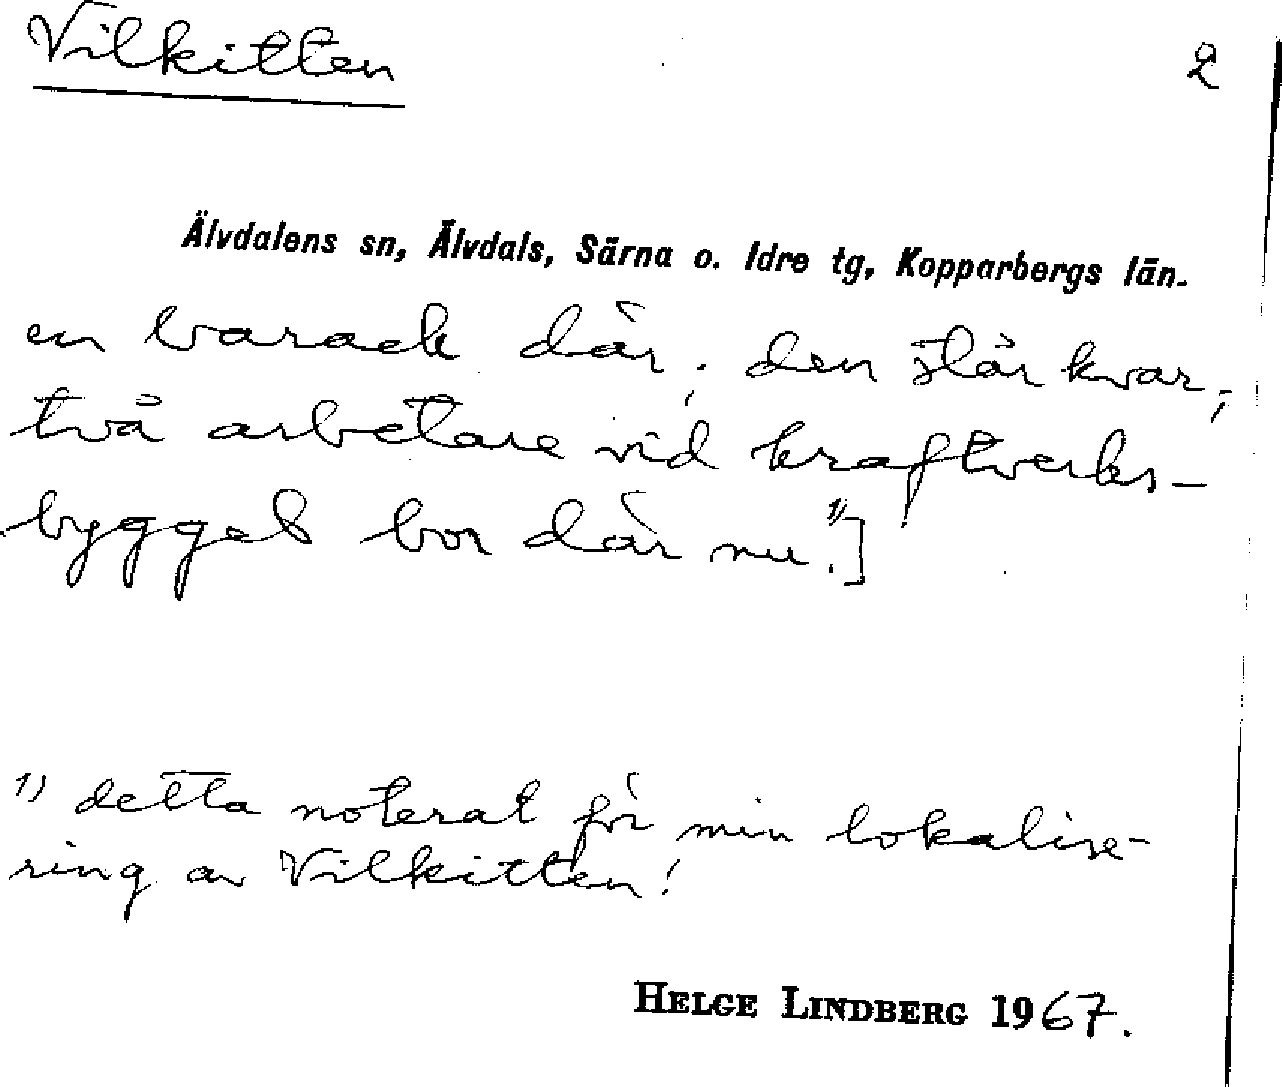 Vilkitten
2
Älvdalens sn, Älvdals, Särna o. Idre tg, Kopparbergs län.
en barack där; den står kvar;
två arbetare vid kraftverks-
bygget bor där nu.¹⁾]
¹⁾ detta noterat för min lokalise-
ring av Vilkitten!
HELGE LINDBERG 1967.